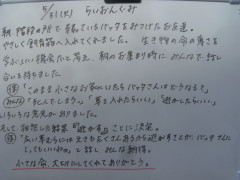 5/31(火) らいおんぐみ
朝、階段の所で弱っているバッタをみつけたお友達。
やさしく飼育箱へ入れてくれました。 生き物の命の尊さを
学ぶよい機会だと考え、朝のお集まり時にみんなで話し
合いを持ちました。
このまま小さなお家にいたらバッタさんはどうなる?
みんな 「死んでしまう」「草を入れたらいい」「逃がしたらいい」
いろいろな意見がおりました。
そして相談した結果『逃がす』ことに決定。
「広い草むらには大きなもたくさんあるから逃がす方が、バッタさんに
とってもいいね」と話し みんな納得。
小さな命、大切にしてくれてありがとう。